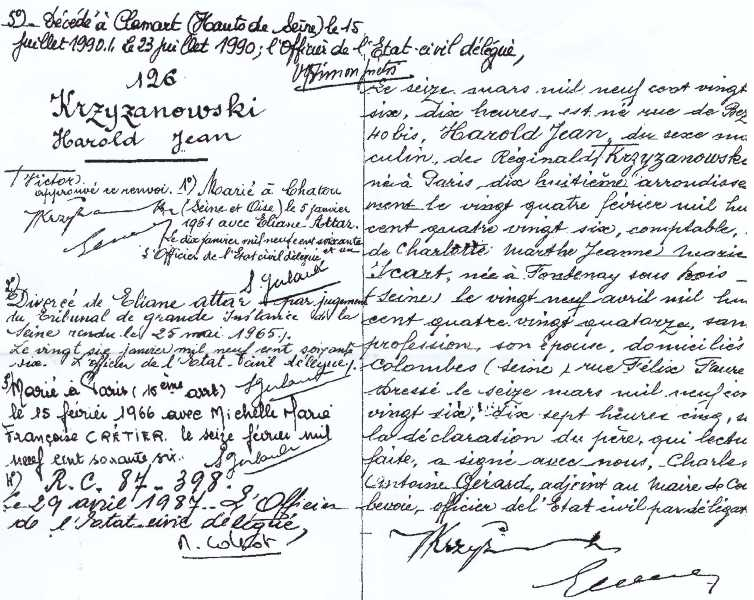 5°) Décédé à Clamart (Hauts de Seine) le 15
juillet 1990./. le 23 juillet 1990; l'Officier de l'Etat-civil délégué,
126
Krzyzanowski
Harold Jean
Victor
approuvé ce renvoi.
1°) Marié à Chatou
(Seine et Oise) le 5 janvier
1961 avec Eliane Attar.
Le dix janvier mil neuf cent soixante
et un
l'Officier de l'Etat civil délégué
2°)
Divorcé de Eliane attar par jugement
du Tribunal de grande Instance de la
Seine rendu le 25 mai 1965./.
Le vingt six janvier mil neuf cent soixante
six. L'officier de l'Etat-civil délégué/.
3°)
Marié à Paris (16ème arrt)
le 15 février 1966 avec Michelle Marie
Françoise CRÉTIER. le seize février mil
neuf cent soixante six.
4°) R.C. 87-398.
Le 29 avril 1987_ L'Officier
de l'Etat civil délégué,
Le seize mars mil neuf cent vingt
six, dix heures, est né rue de Bez
40 bis, Harold Jean, du sexe mas
culin, de Réginald Krzyzanowski
né à Paris, dix huitième arrondisse
ment le vingt quatre février mil hui
cent quatre vingt six, comptable,
de Charlotte Marthe Jeanne Marie
Icart, née à Fontenay sous bois
(Seine) le vingt neuf avril mil hui
cent quatre vingt quatorze, sans
profession, son épouse, domiciliés
Colombes (Seine) rue Félix Faure
dressé le seize mars mil neuf cent
vingt six, dix sept heures cinq, su
la déclaration du père, qui lecture
faite, a signé avec nous, Charles
Antoine Gérard, adjoint au maire de Cou
bevoie, officier de l'Etat civil par délégat